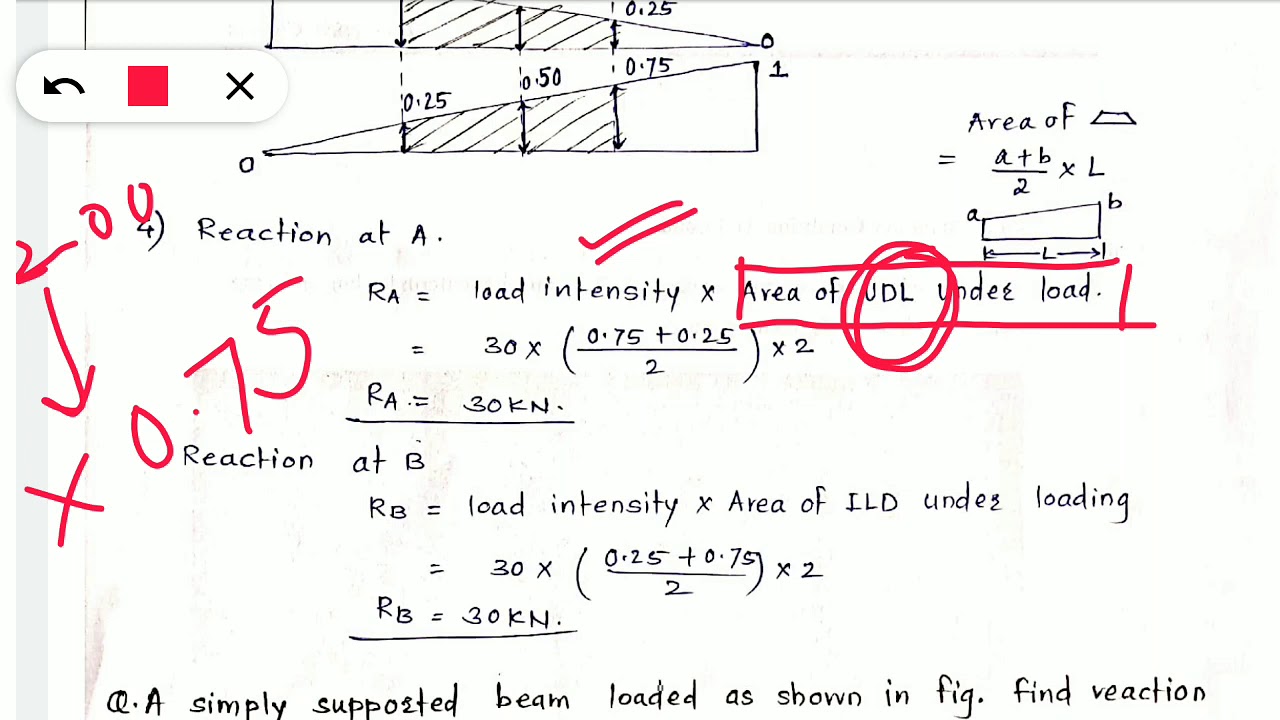 0.25
0
0.25 0.50 0.75 1
0
Area of
= a+b/2 × L
a b
L
2 00
4) Reaction at A.
RA = load intensity × Area of UDL under load.
= 30 × (0.75 + 0.25/2) × 2
RA = 30KN.
0.75
+
Reaction at B
RB = load intensity × Area of ILD under loading
= 30 × (0.25 + 0.75/2) × 2
RB = 30KN.
Q. A simply supported beam loaded as shown in fig. find reaction